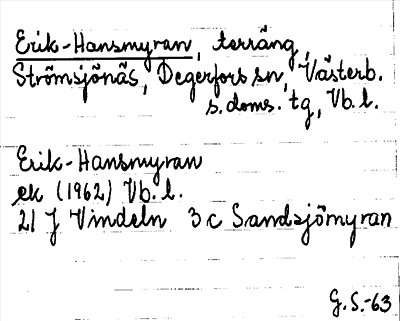 Erik-Hansmyran, terräng,
Strömsjönäs, Degerfors sn, Västerb.
s. doms. tg, Vb. l.
Erik-Hansmyran
ek (1962) Vb. l.
21 J Vindeln 3 c Sandsjömyran
G. S.-63